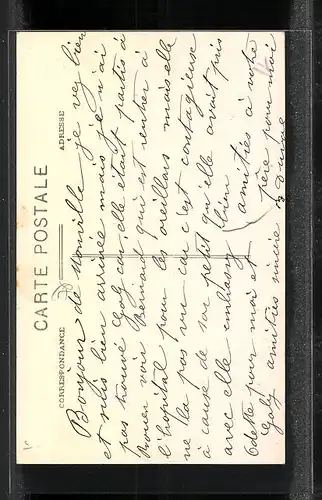 CARTE POSTALE
CORRESPONDANCE
ADRESSE
Bonjour de Monville je vez bien
et suis bien arrivée mais je n'ai
pas trouvé Gaby car elle était partis à
Rouen voir Bernard qui est rentrer à
l'hôpital pour les oreillars mais elle
ne la pas vue car c'est contagieuse
à cause de son petit qu'elle avait pris
avec elle embrassy bien
Odette pour moi et
Gaby amitiés sincère
amitiés à votre
père pour moi